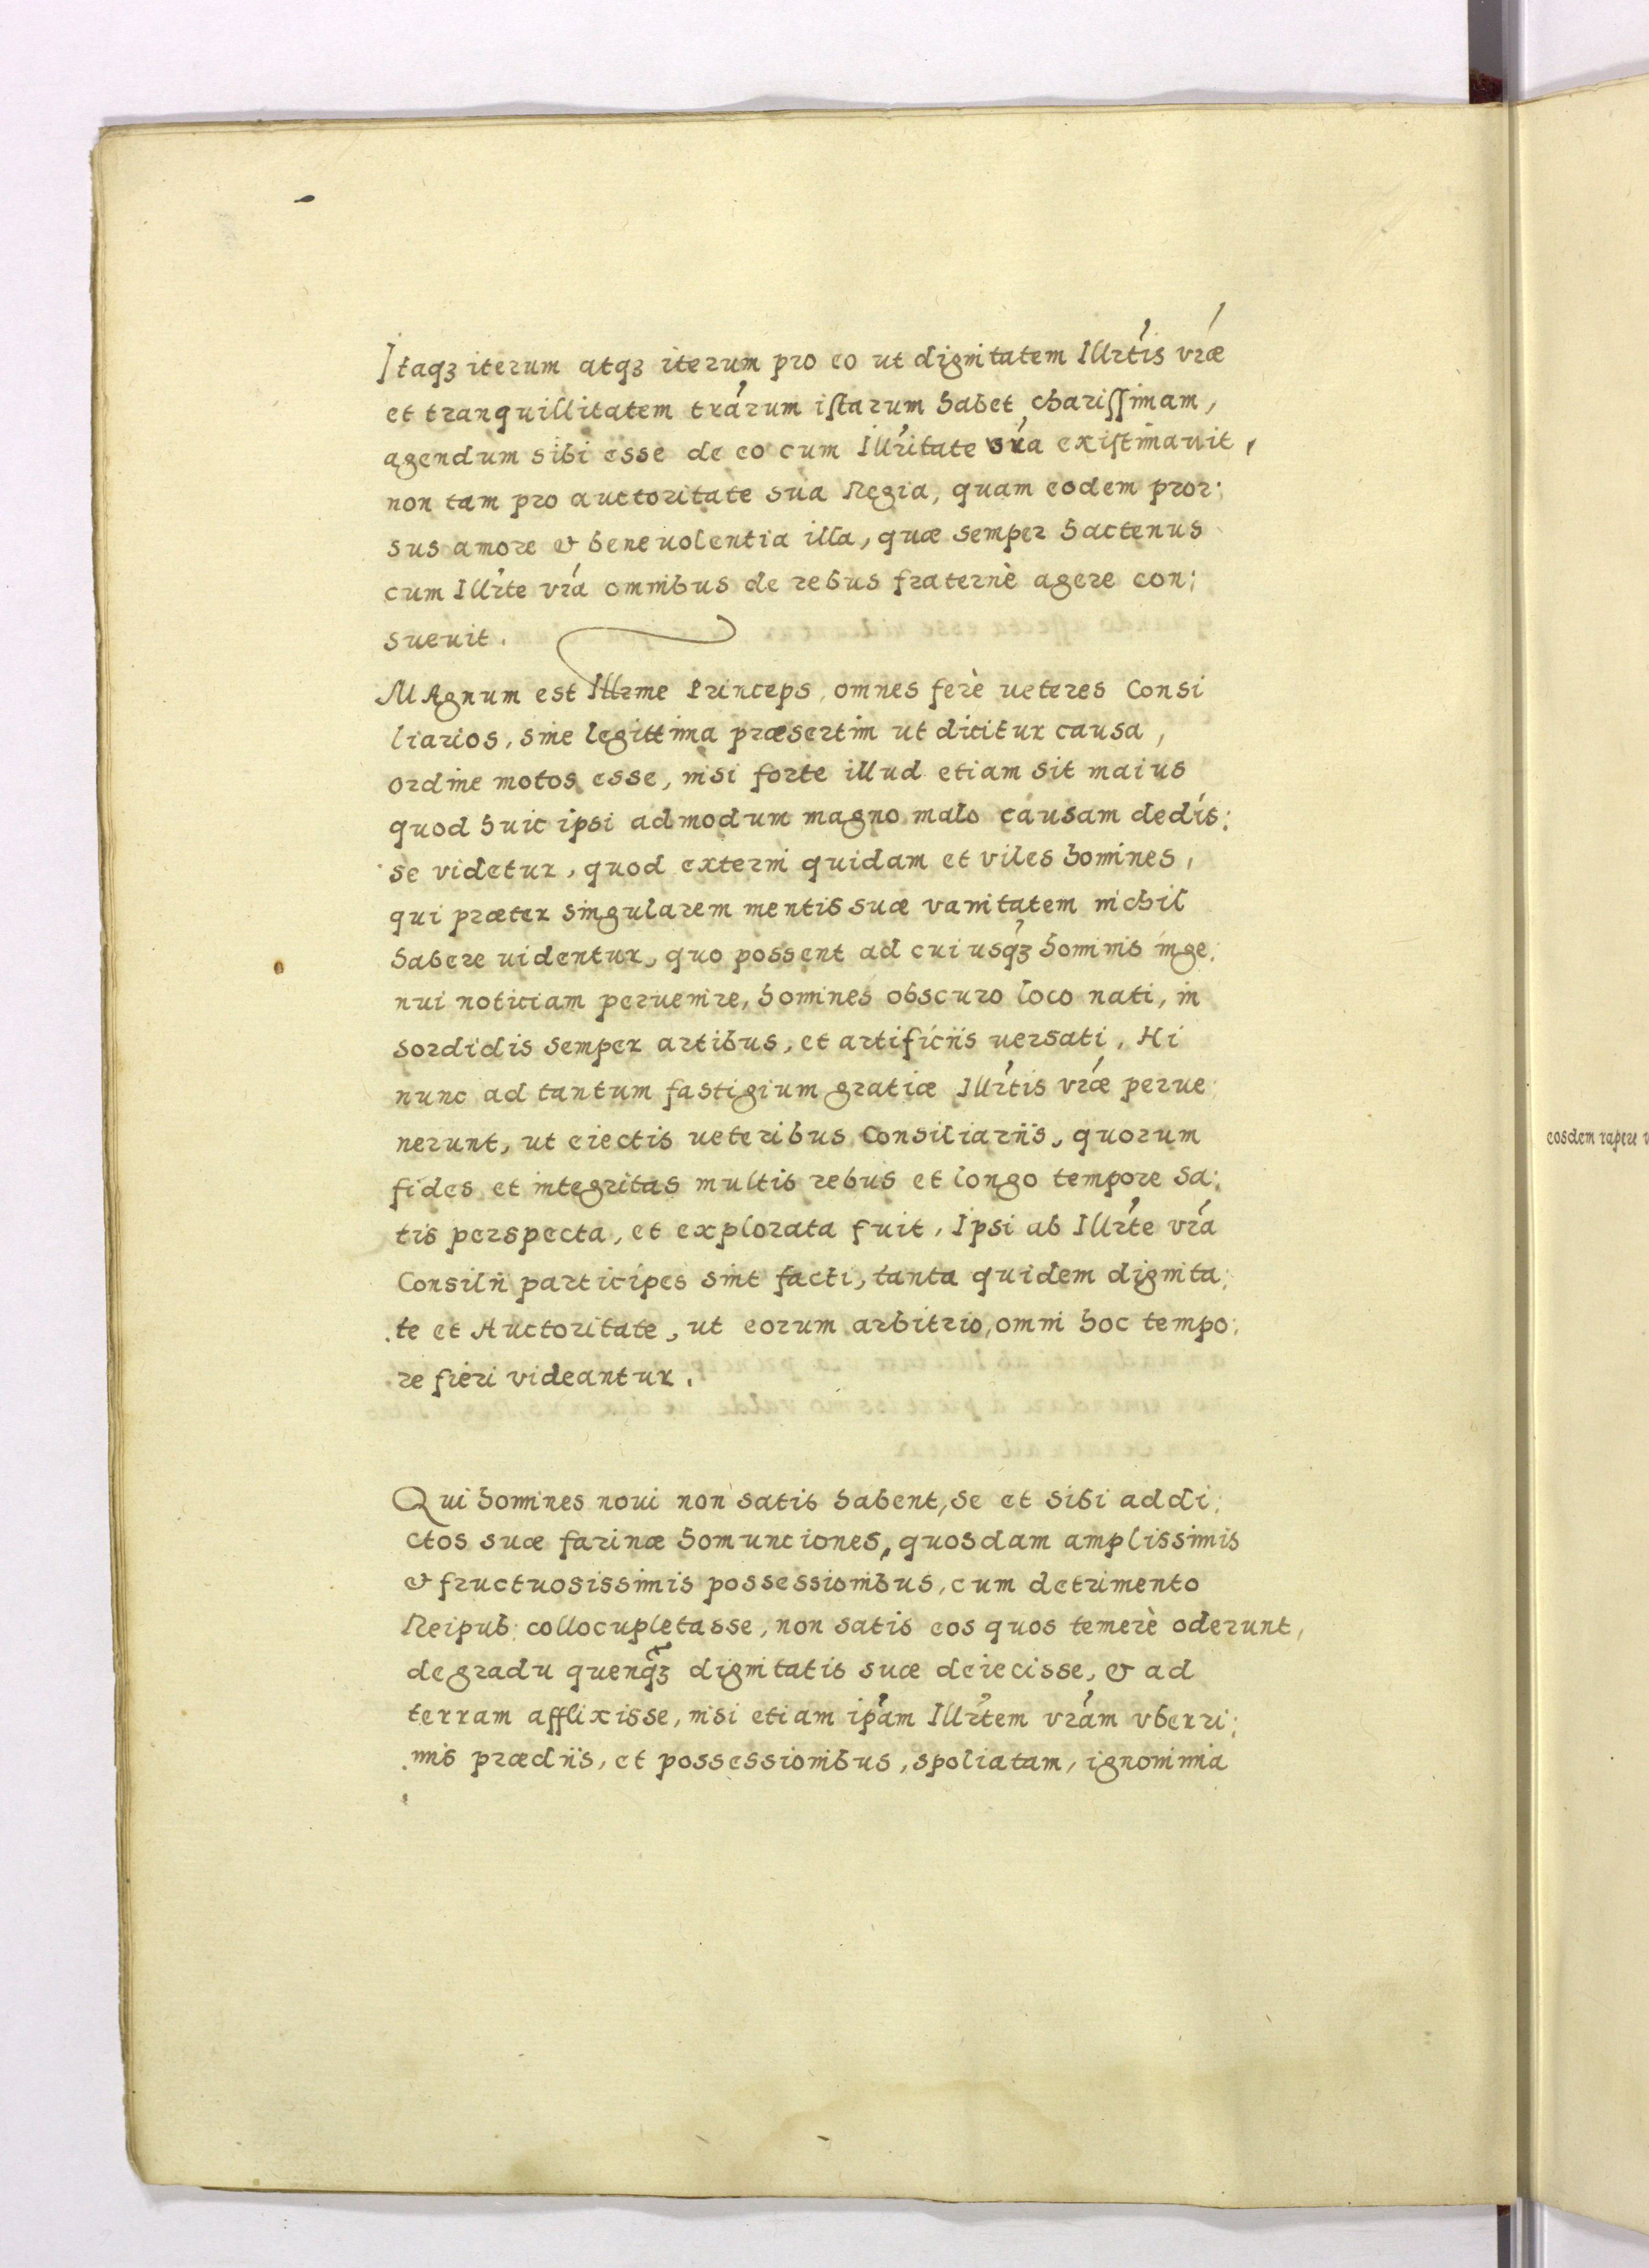 Itaqꝫ iterum atqꝫ iterum pro eo ut dignitatem Illrtis vræ
et tranquillitatem trarum istarum habet charissimam,
agendum sibi esse de eo cum Illritate vra existimauit,
non tam pro auctoritate sua Regia, quam eodem pror:
sus amore & beneuolentia illa, quæ semper hactenus
cum Illrte vra omnibus de rebus fraternè agere con:
sueuit.
MAgnum est Illrme Princeps, omnes ferè ueteres Consi
liarios, sine legittima præsertim ut dicitur causa,
ordine motos esse, nisi forte illud etiam sit maius
quod huic ipsi admodum magno malo causam dedis:
se videtur, quod externi quidam et viles homines,
qui præter singularem mentis suæ vanitatem nichil
habere uidentur, quo possent ad cuiusqꝫ hominis inge:
nui noticiam peruenire, homines obscuro loco nati, in
sordidis semper artibus, et artificiis uersati, Hi
nunc ad tantum fastigium gratiæ Illrtis vræ perue:
nerunt, ut eiectis ueteribus Consiliariis, quorum
fides et integritas multis rebus et longo tempore sa:
tis perspecta, et explorata fuit, Ipsi ab Illrte vra
Consilii participes sint facti, tanta quidem dignita:
te et Auctoritate, ut eorum arbitrio, omni hoc tempo:
re fieri videantur.
Qui homines noui non satis habent, se et sibi addi:
ctos suæ farinæ homunciones, quosdam amplissimis
& fructuosissimis possessionibus, cum detrimento
Reipub: collocupletasse, non satis eos quos temerè oderunt,
de gradu quenqꝫ dignitatis suæ deiecisse, & ad
terram afflixisse, nisi etiam ipam Illrtem vram vberri:
mis prædiis, et possessionibus, spoliatam, ignominia
eosdem rapere